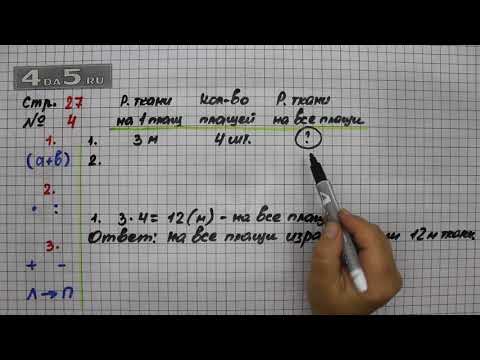 4DA5.RU
Стр. 27
№ 4
1.
(а+в)
2.
• :
3.
+ -
Л→П
Р. ткани Кол-во Р. ткани
на 1 плащ плащей на все плащи
1. 3 м 4 шт. ?
2.
1. 3·4=12(м) - на все
Ответ: на все плащи 12 м ткани